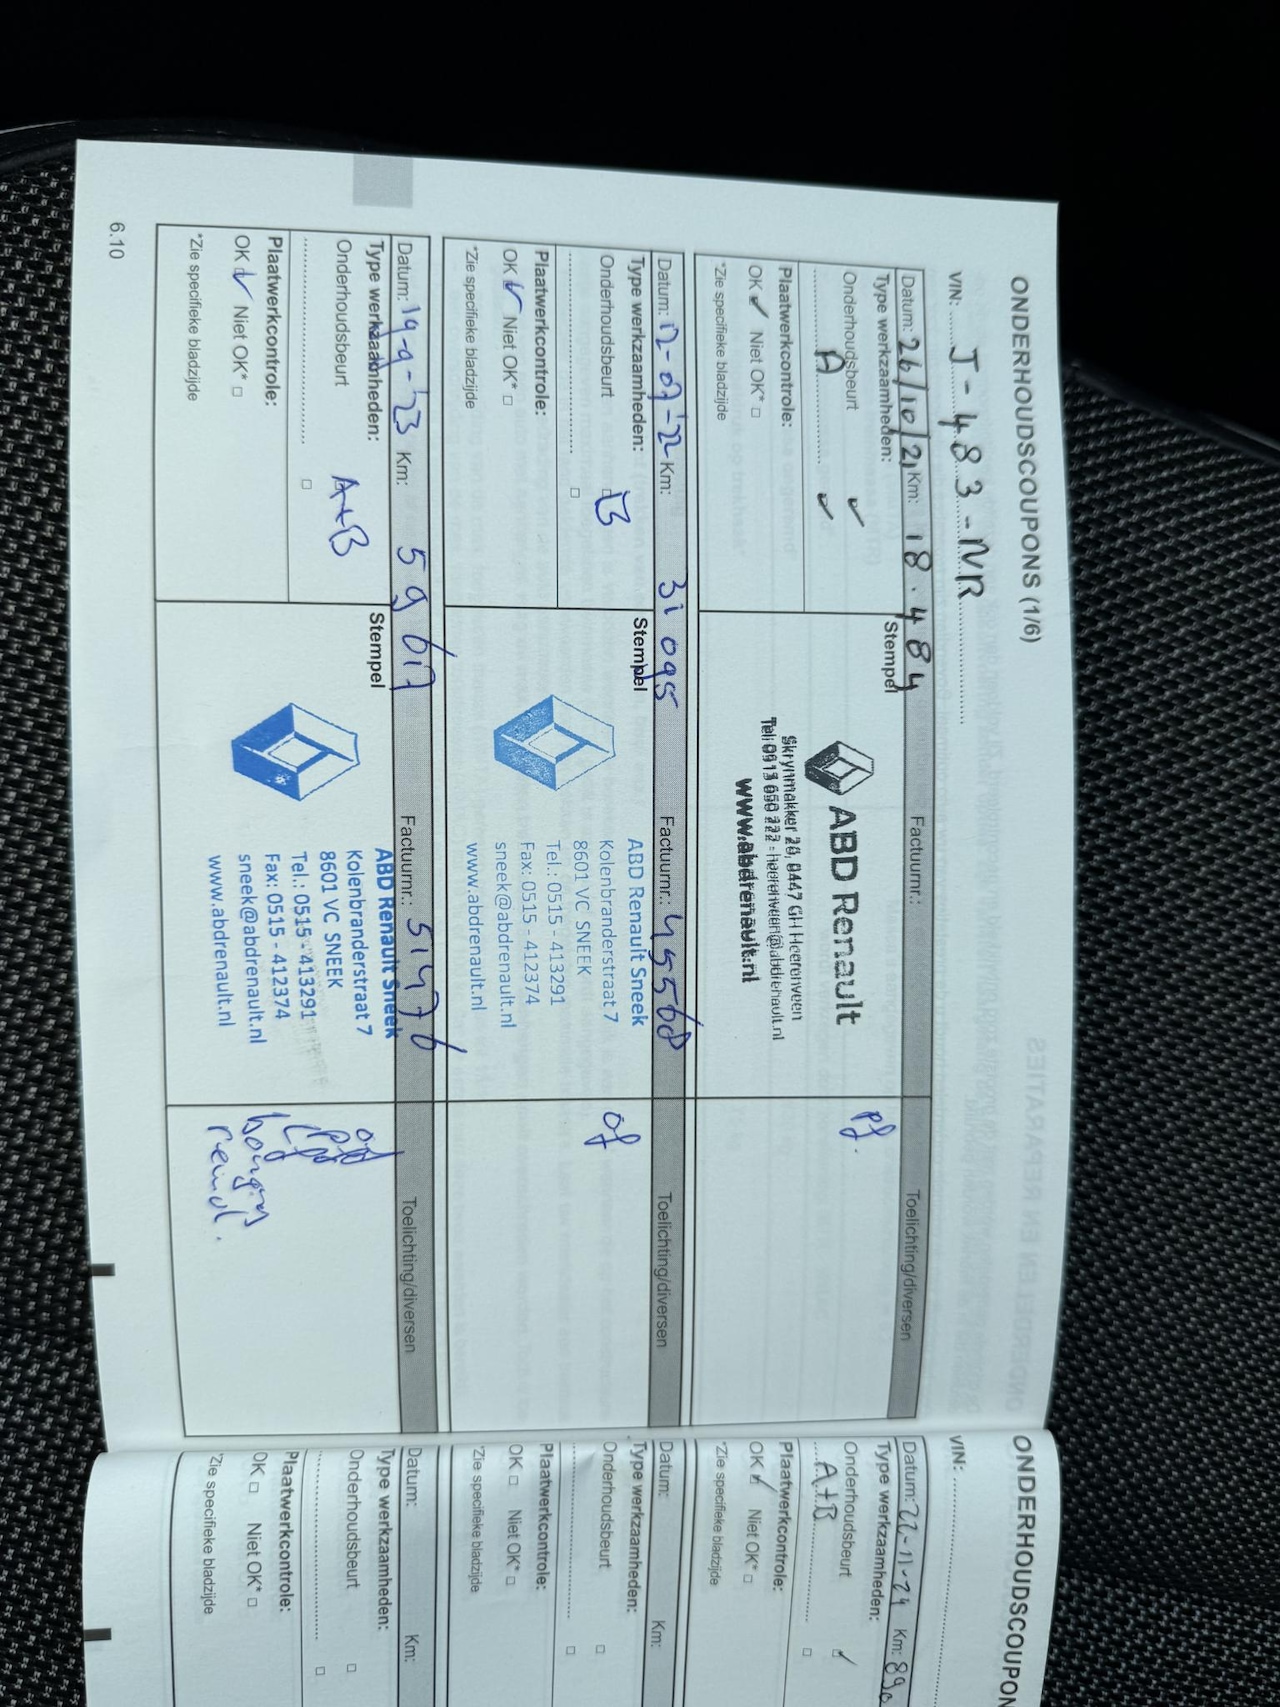 ONDERHOUDSCOUPONS (1/6)
VIN: J-483-NR
Datum: 26/10/21 Km: 18.484 Factuurnr.: Toelichting/diversen
Type werkzaamheden:
Onderhoudsbeurt ✓
A ✓
Plaatwerkcontrole:
OK ✓ Niet OK* □
*Zie specifieke bladzijde
Stempel
ABD Renault
Skrynmakker 20, 8447 GH Heerenveen
Tel: 0513 650 222 - heerenveen@abdrenault.nl
www.abdrenault.nl
pf.
Datum: 12-07-'22 Km: 31095 Factuurnr.: 45568 Toelichting/diversen
Type werkzaamheden:
Onderhoudsbeurt B
□
Plaatwerkcontrole:
OK ✓ Niet OK* □
*Zie specifieke bladzijde
Stempel
ABD Renault Sneek
Kolenbranderstraat 7
8601 VC SNEEK
Tel.: 0515 - 413291
Fax: 0515 - 412374
sneek@abdrenault.nl
www.abdrenault.nl
of
Datum: 19-9-'23 Km: 59617 Factuurnr.: 51476 Toelichting/diversen
Type werkzaamheden:
Onderhoudsbeurt A+B
□
Plaatwerkcontrole:
OK ✓ Niet OK* □
*Zie specifieke bladzijde
Stempel
ABD Renault Sneek
Kolenbranderstraat 7
8601 VC SNEEK
Tel.: 0515 - 413291
Fax: 0515 - 412374
sneek@abdrenault.nl
www.abdrenault.nl
6.10
ONDERHOUDSCOUPON
VIN:
Datum: 22-11-24 Km: 89
Type werkzaamheden:
Onderhoudsbeurt ✓
A+B □
Plaatwerkcontrole:
OK ✓ Niet OK* □
*Zie specifieke bladzijde
Datum: Km:
Type werkzaamheden:
Onderhoudsbeurt □
□
Plaatwerkcontrole:
OK □ Niet OK* □
*Zie specifieke bladzijde
Datum: Km:
Type werkzaamheden:
Onderhoudsbeurt □
□
Plaatwerkcontrole:
OK □ Niet OK* □
*Zie specifieke bladzijde